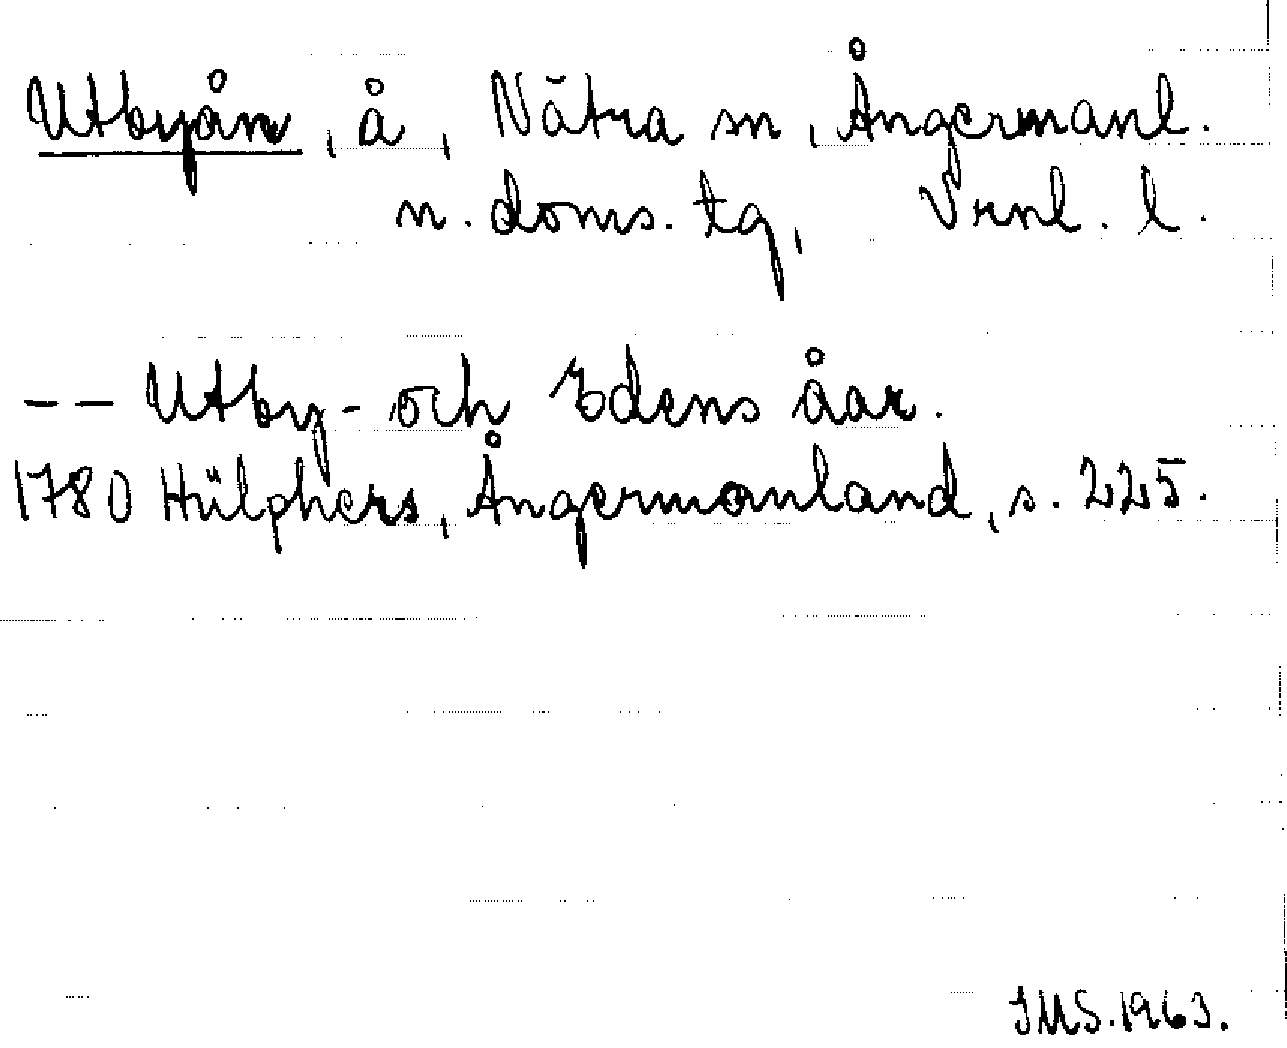 Utbyån, å, Nätra sn, Ångermanl.
n. doms. tg, Vrnl. l.
-- Utby- och Edens åar.
1780 Hülphers, Ångermanland, s. 225.
IMS. 1963.